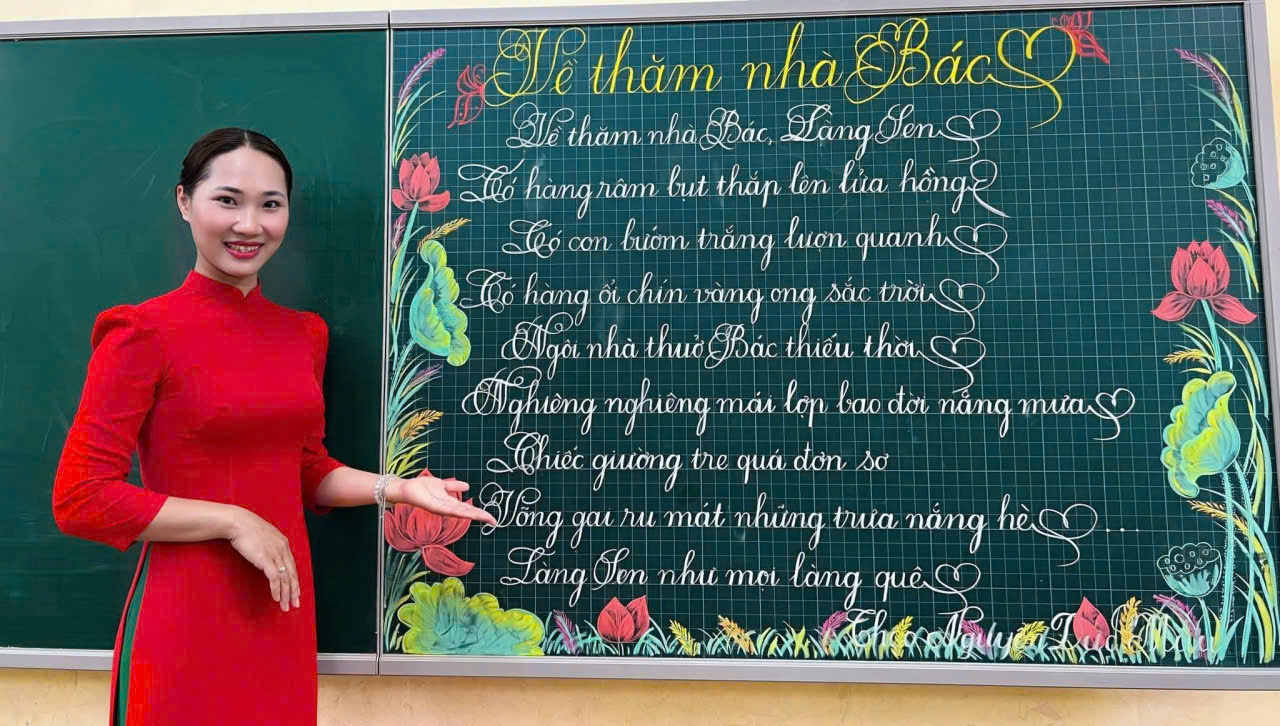 Về thăm nhà Bác
Về thăm nhà Bác, Làng Sen
Có hàng râm bụt thắp lên lửa hồng
Có con bướm trắng lượn quanh
Có hàng ổi chín vàng ong sắc trời
Ngôi nhà thuở Bác thiếu thời
Nghiêng nghiêng mái lợp bao đời nắng mưa
Chiếc giường tre quá đơn sơ
Võng gai ru mát những trưa nắng hè ...
Làng Sen như mọi làng quê
Theo Nguyễn Đức Mậu